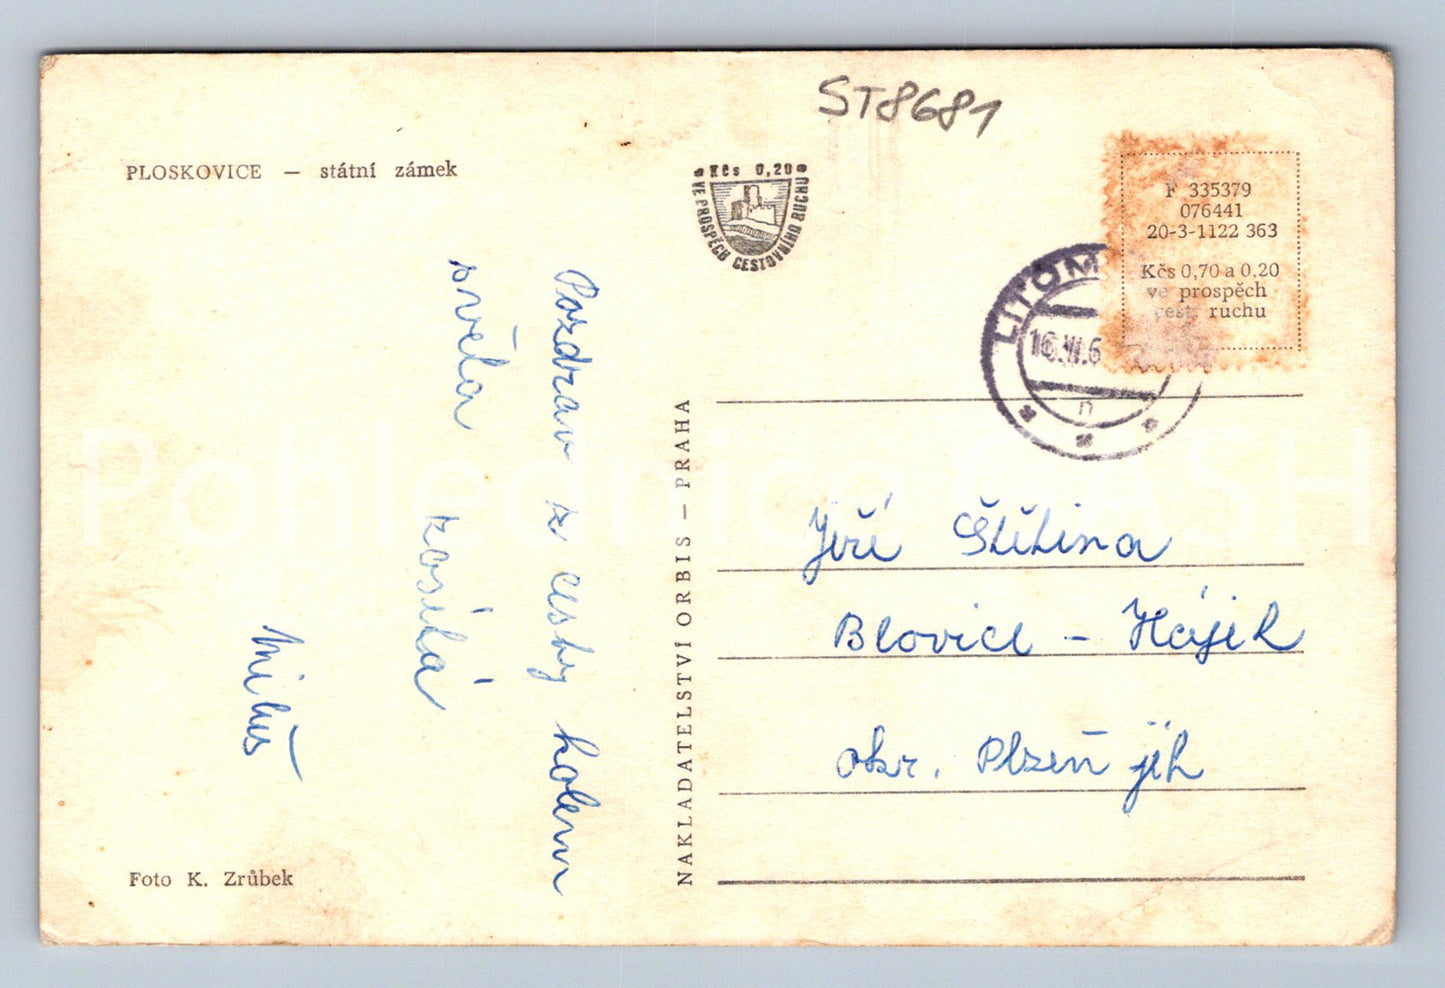 ST8681
PLOSKOVICE — státní zámek
Kčs 0,20
VE PROSPĚCH CESTOVNÍHO RUCHU
F 335379
076441
20-3-1122 363
Kčs 0,70 a 0.20
ve prospěch
cest. ruchu
LITOM
16.VI.6
n
Pozdrav z cesty kolem
světa
zasílá
Miluš
NAKLADATELSTVÍ ORBIS — PRAHA
Jiří Štětina
Blovice - Hájek
okr. Plzeň jih
Foto K. Zrůbek
Pohlednice GASH